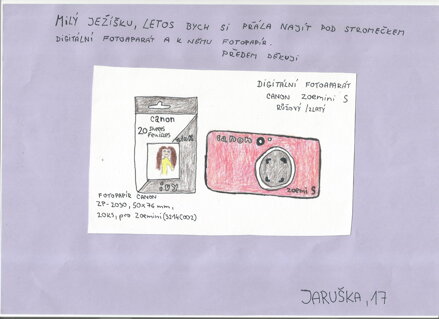 MILÝ JEŽÍŠKU, LETOS BYCH SI PŘÁLA NAJÍT POD STROMEČKEM
DIGITÁLNÍ FOTOAPARÁT A K NĚMU FOTOPAPÍR.
PŘEDEM DĚKUJI
DIGITÁLNÍ FOTOAPARÁT
CANON ZOEMINI S
RŮŽOVÝ/ZLATÝ
canon
20
canon
zoemi S
FOTOPAPÍR CANON
ZP-2030, 50x76 mm,
20KS, pro Zoemini (3214C002)
JARUŠKA, 17